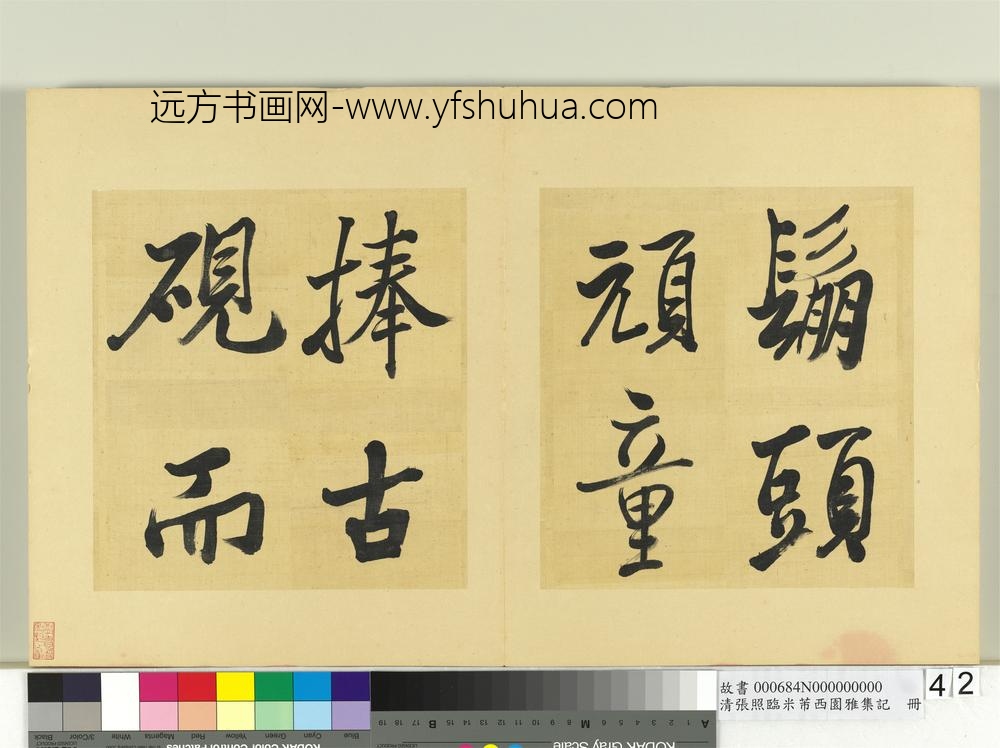 远方书画网-www.yfshuhua.com
鬅頭
頑童
捧古
硯而
故書 000684N000000000
清張照臨米芾西園雅集記 冊
42
Black
3/Color
White
Magenta
Red
Yellow
Green
Cyan
Blue
KODAK Color Control Patches
KODAK Gray Scale
A 1 2 3 4 5 6 M 8 9 10 11 12 13 14 15 B 17 18 19